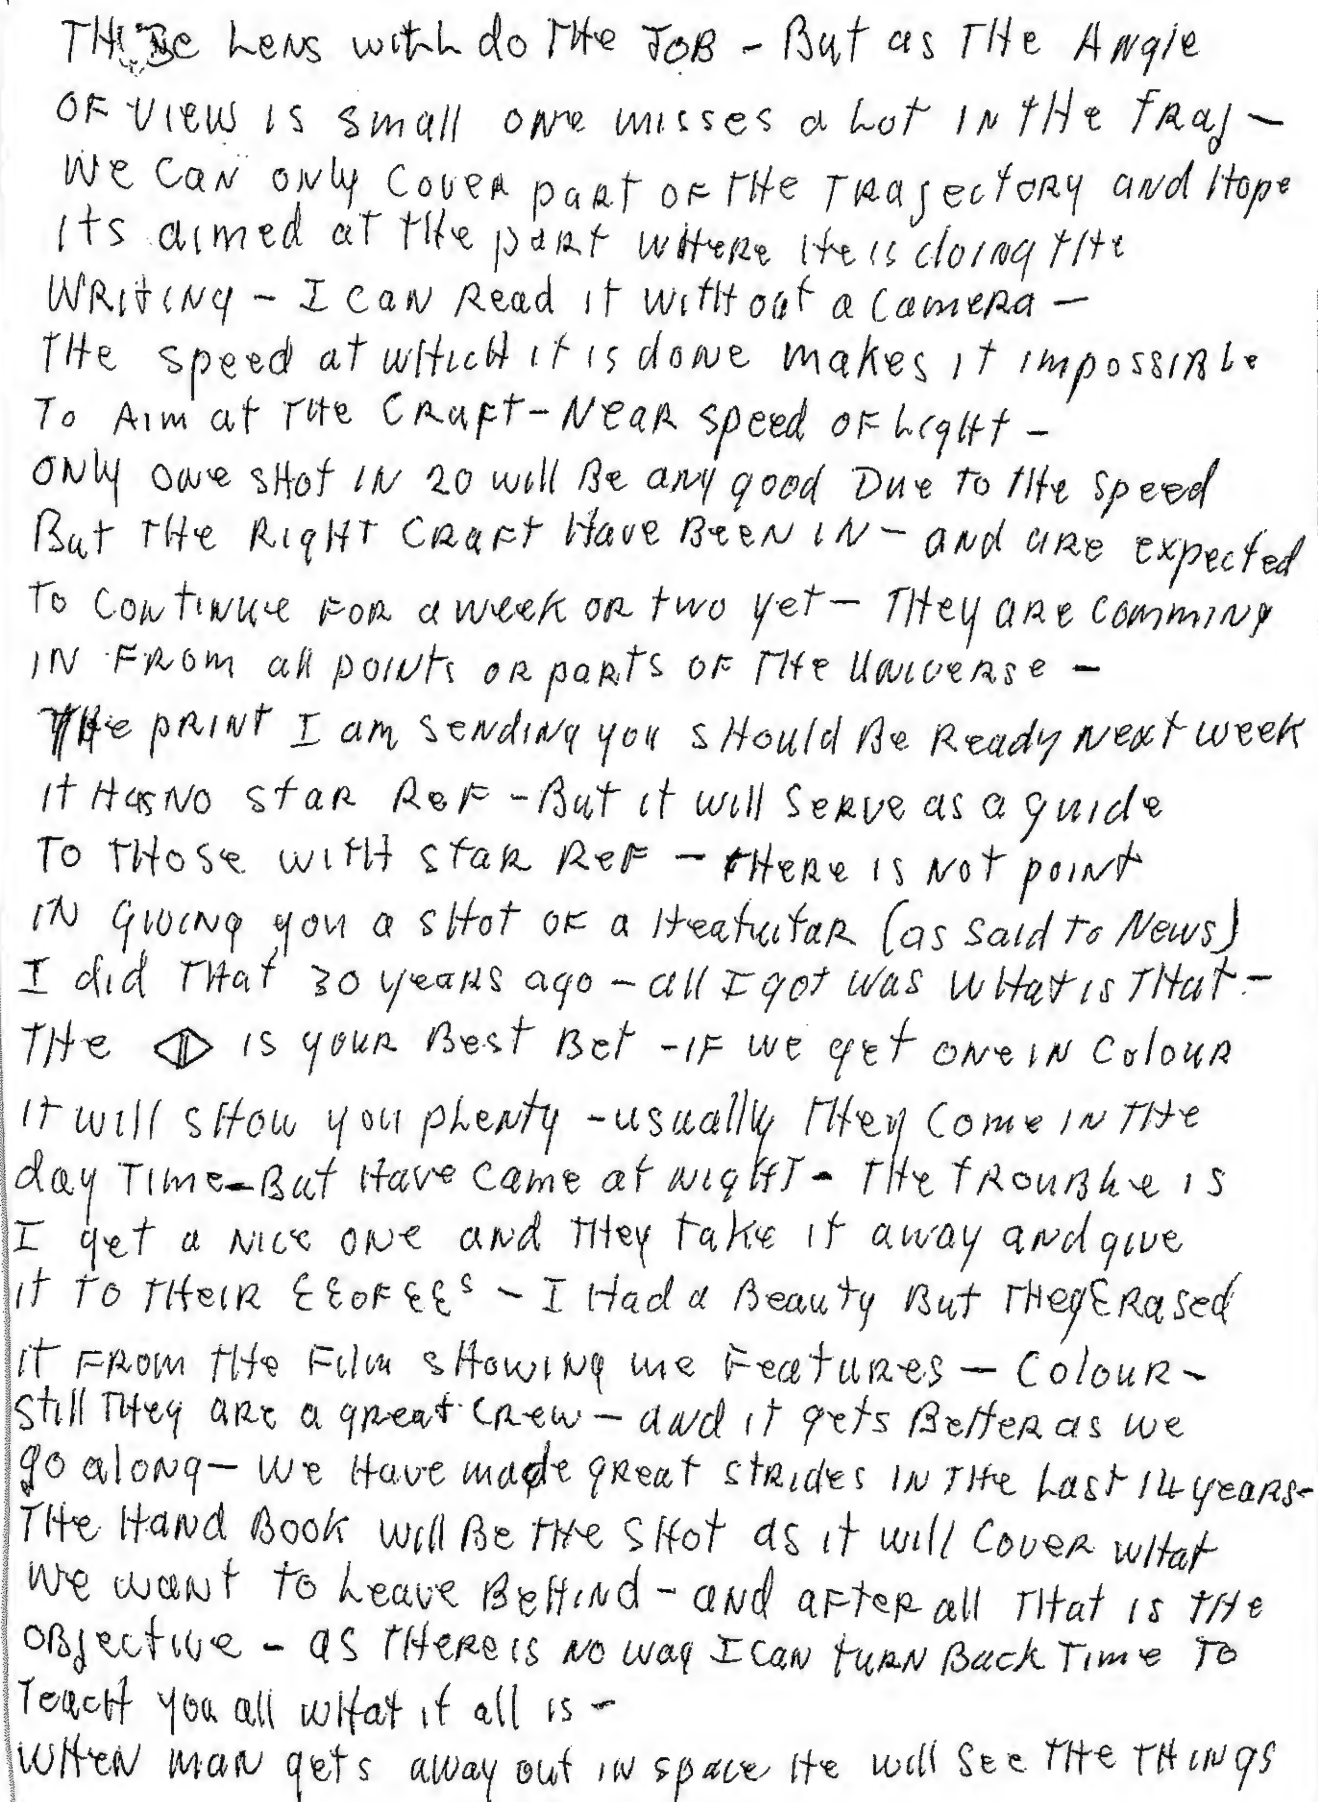 THE Lens will do THE JOB - But as THE Angle
OF View is small one misses a Lot IN tHe TRAJ -
We Can only Cover part OF THe TRAJectoRy and Hope
Its aimed at tHe part wHeRe He is doing tHe
WRiting - I can Read it witHout a CameRa -
THe speed at wHicH it is done makes it impossiBLe
To Aim at THe CRaft - NeaR speed OF LigHt -
only one sHot in 20 will Be any good Due To tHe speed
But THe RigHt CRaFt Have Been IN - and aRe expected
To Continue FoR a week oR two yet - THey aRe comming
IN FRom all points oR paRts of THe UniveRse -
THe pRint I am sending you sHould Be Ready Next week
It Has No staR ReF - But it will SeRve as a guide
To THose witH staR ReF - tHeRe is Not point
in giving you a sHot OF a (as said To News)
I did THat 30 yeaRs ago - all I got was wHat is THat -
THe is youR Best Bet - iF we get one in ColouR
It will sHow you pLenty - usually THey Come IN THe
day Time - But Have Came at nigHT - THe tRouBLe is
I get a nice one and THey take it away and give
it To THeiR - I Had a Beauty But THey ERased
it FRom tHe Film sHowing me FeatuRes - ColouR -
still THey aRe a gReat CRew - and it gets BetteR as we
go along - we Have made gReat stRides IN THe Last 14 yeaRs -
THe Hand Book will Be THe sHot as it will CoveR wHat
We want To Leave BeHind - and aFteR all THat is tHe
oBjective - as THeRe is no way I can tuRN Back Time To
TeacH you all wHat it all is -
WHeN man gets away out in space He will See THe THINGS